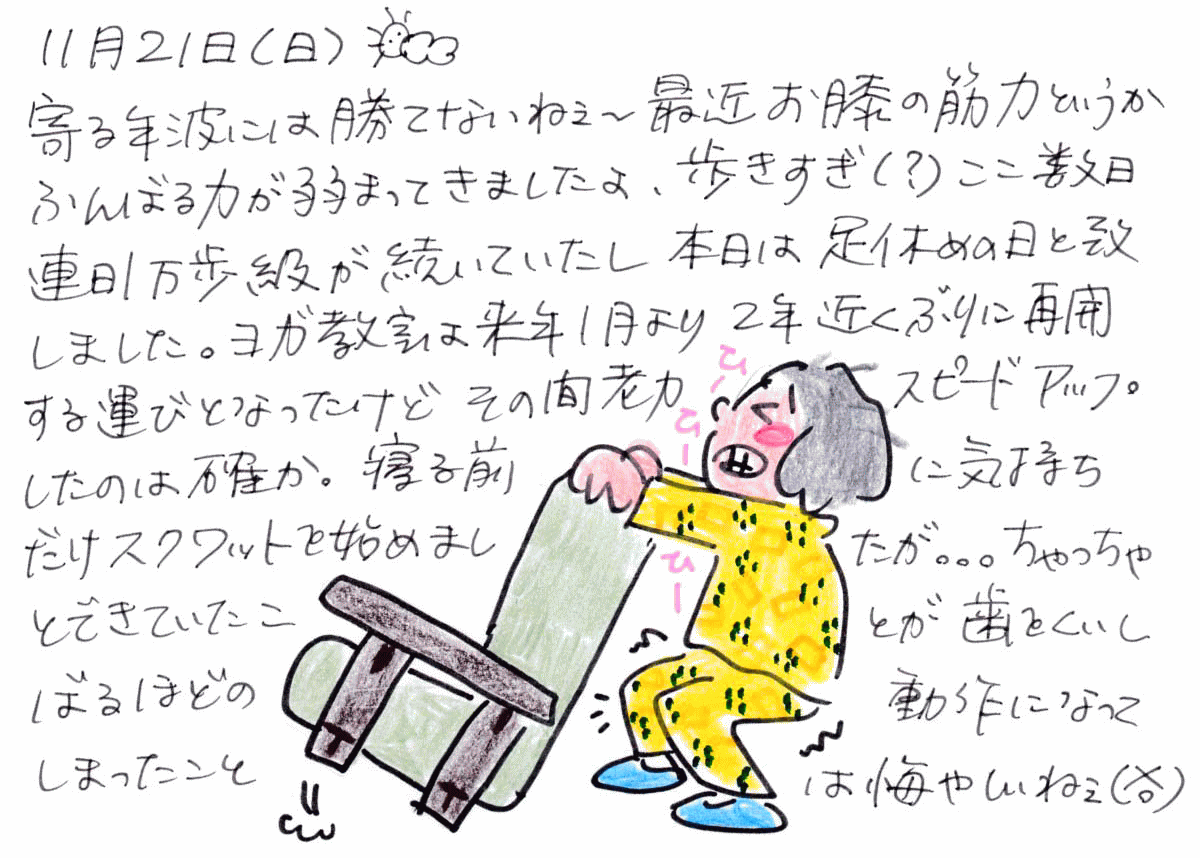 11月21日(日)
寄る年波には勝てないねぇ〜最近お膝の筋力というか
ふんばる力が弱まってきましたよ、歩きすぎ(?)ここ数日
連日1万歩級が続いていたし 本日は足休めの日と致
しました。ヨガ教室は来年1月より 2年近くぶりに再開
する運びとなったけど その間老力 スピードアップ。
したのは確か。寝る前 に気持ち
だけスクワットを始めまし たが。。。ちゃっちゃ
とできていたこ とが 歯をくいし
ばるほどの 動作になって
しまったこと は悔やしいねぇ(笑)
ひー
ひー
ひー